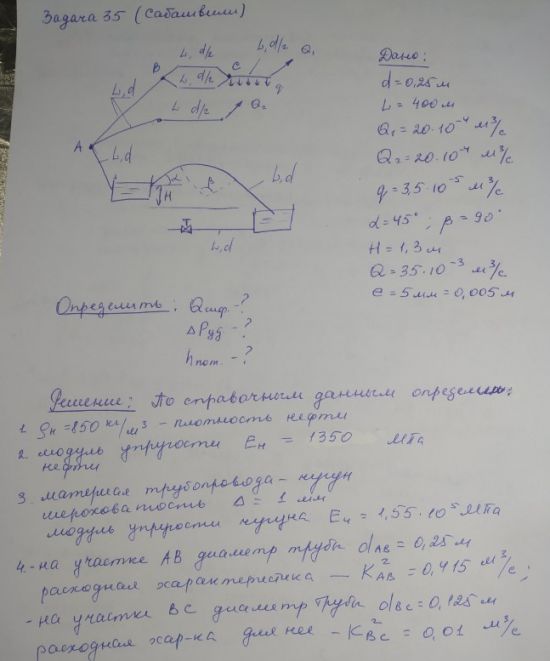 Задача 35 (Сабашвили)
L, d/2
L, d/2
Q₁
B
C
L, d/2
q
L, d
L d/2
Q₂
A
L, d
α
β
H
L, d
L, d
Дано:
d = 0,25 м
L = 400 м
Q₁ = 20·10⁻⁴ м³/с
Q₂ = 20·10⁻⁴ м³/с
q = 3,5·10⁻⁵ м³/с
α = 45°; β = 90°
H = 1,3 м
Q = 35·10⁻³ м³/с
e = 5 мм = 0,005 м
Определить: Qсиф. - ?
ΔPуд - ?
hпот. - ?
Решение: По справочным данным определим:
1. ρн = 850 кг/м³ - плотность нефти
2. модуль упругости Eн = 1350 МПа
нефти
3. материал трубопровода - чугун
шероховатость Δ = 1 мм
модуль упругости чугуна Eч = 1,55·10⁵ МПа
4. - на участке AB диаметр трубы dAB = 0,25 м
расходная характеристика - K²AB = 0,415 м³/с;
- на участке BC диаметр трубы dBC = 0,125 м
расходная хар-ка для нее - K²BC = 0,01 м³/с